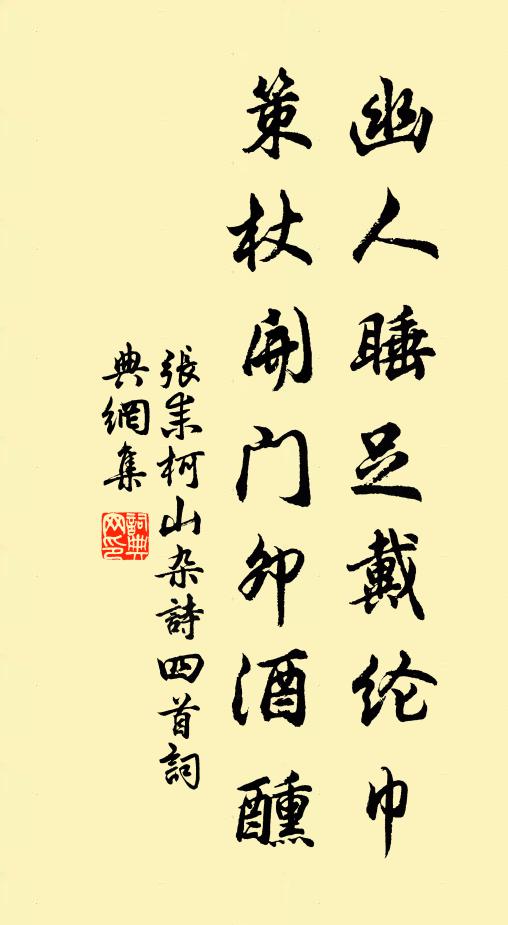 幽人睡足戴纶巾
策杖開门卯酒醺
張耒柯山杂詩四首詞
典網集
詞典
网印